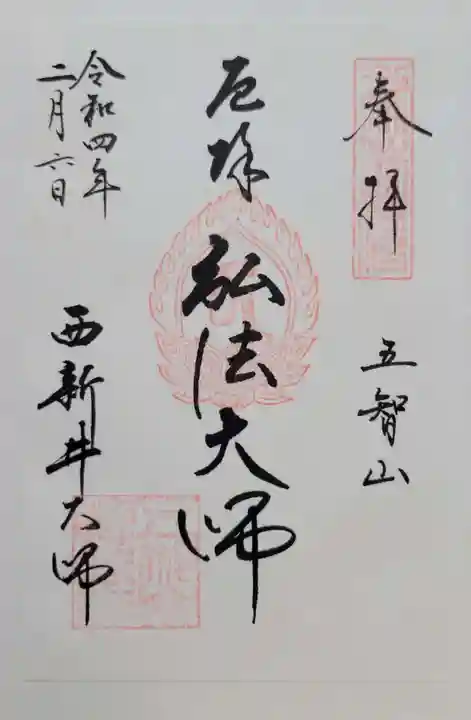 奉拝
五智山
厄除 弘法大師
令和四年
二月六日
西新井大師